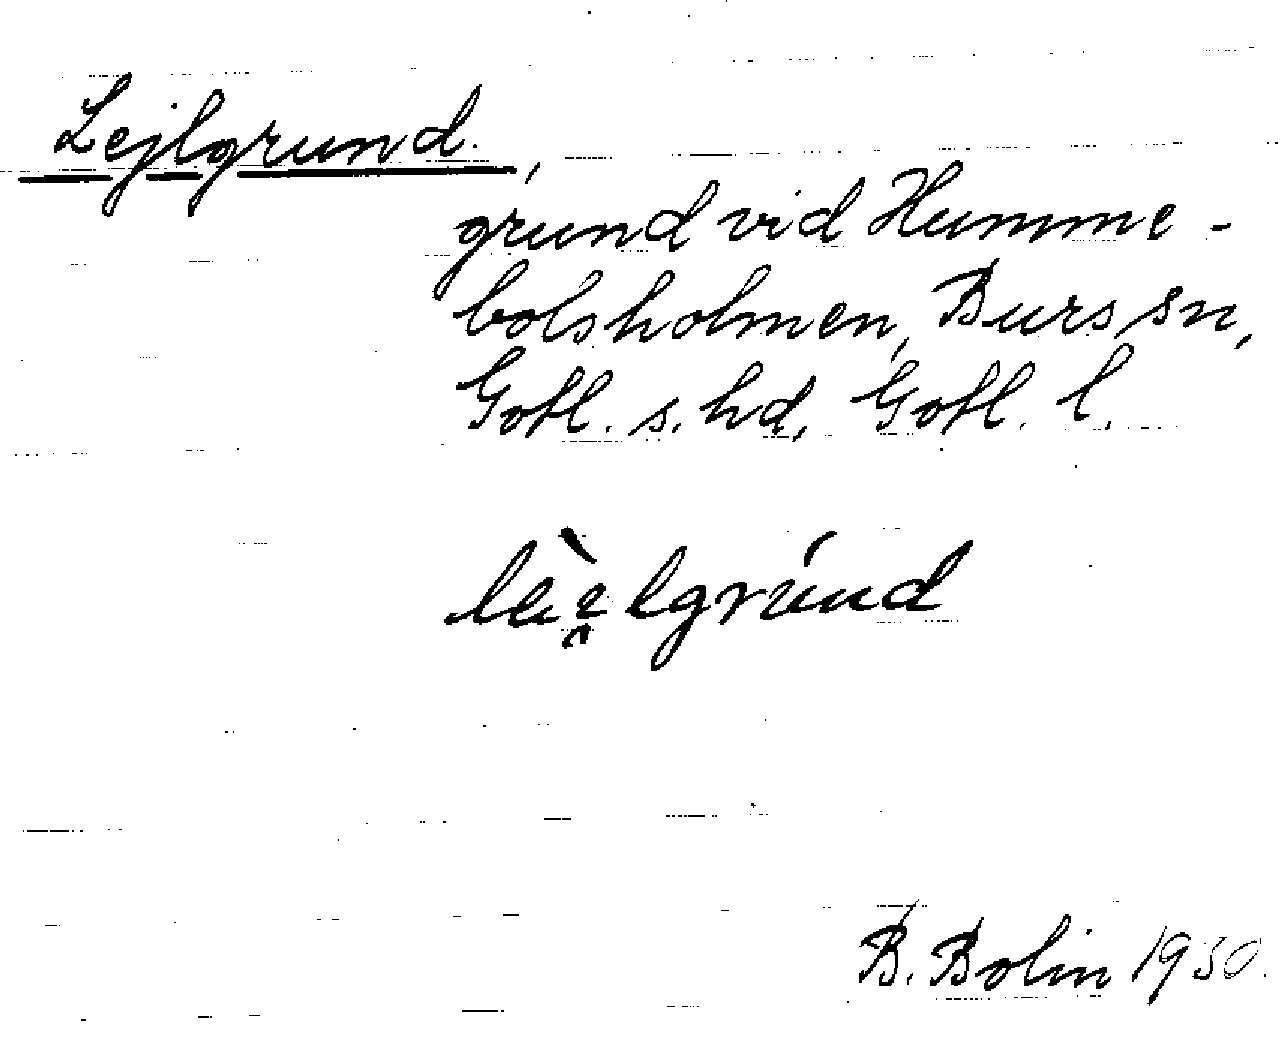 Lejlgrund.,
grund vid Humme-
bolsholmen, Burs sn,
Gotl. s. hd, Gotl. l.
B. Bolin 1930.